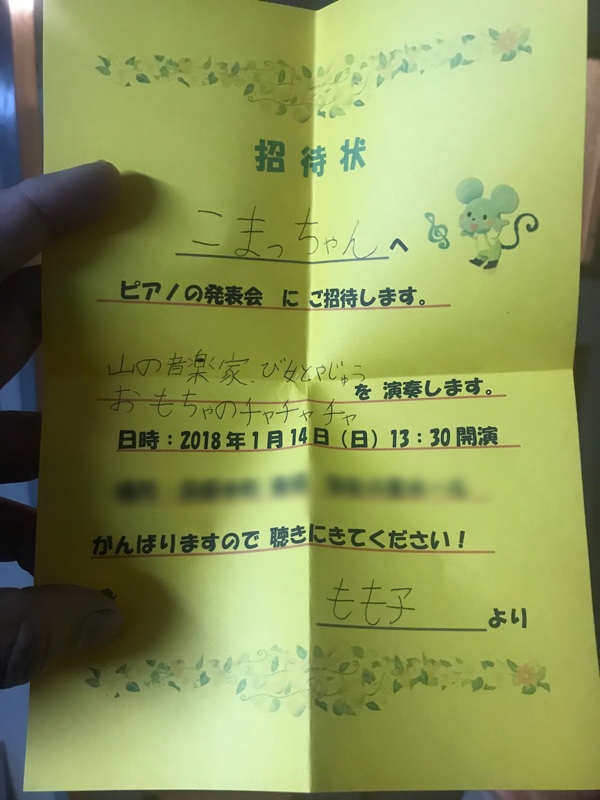 招待状
こまっちゃんへ
ピアノの発表会 に ご招待します。
山の音楽家、び女とやじゅう
おもちゃのチャチャチャ を 演奏します。
日時：2018年1月14日（日）13：30開演
がんばりますので 聴きにきてください！
もも子より